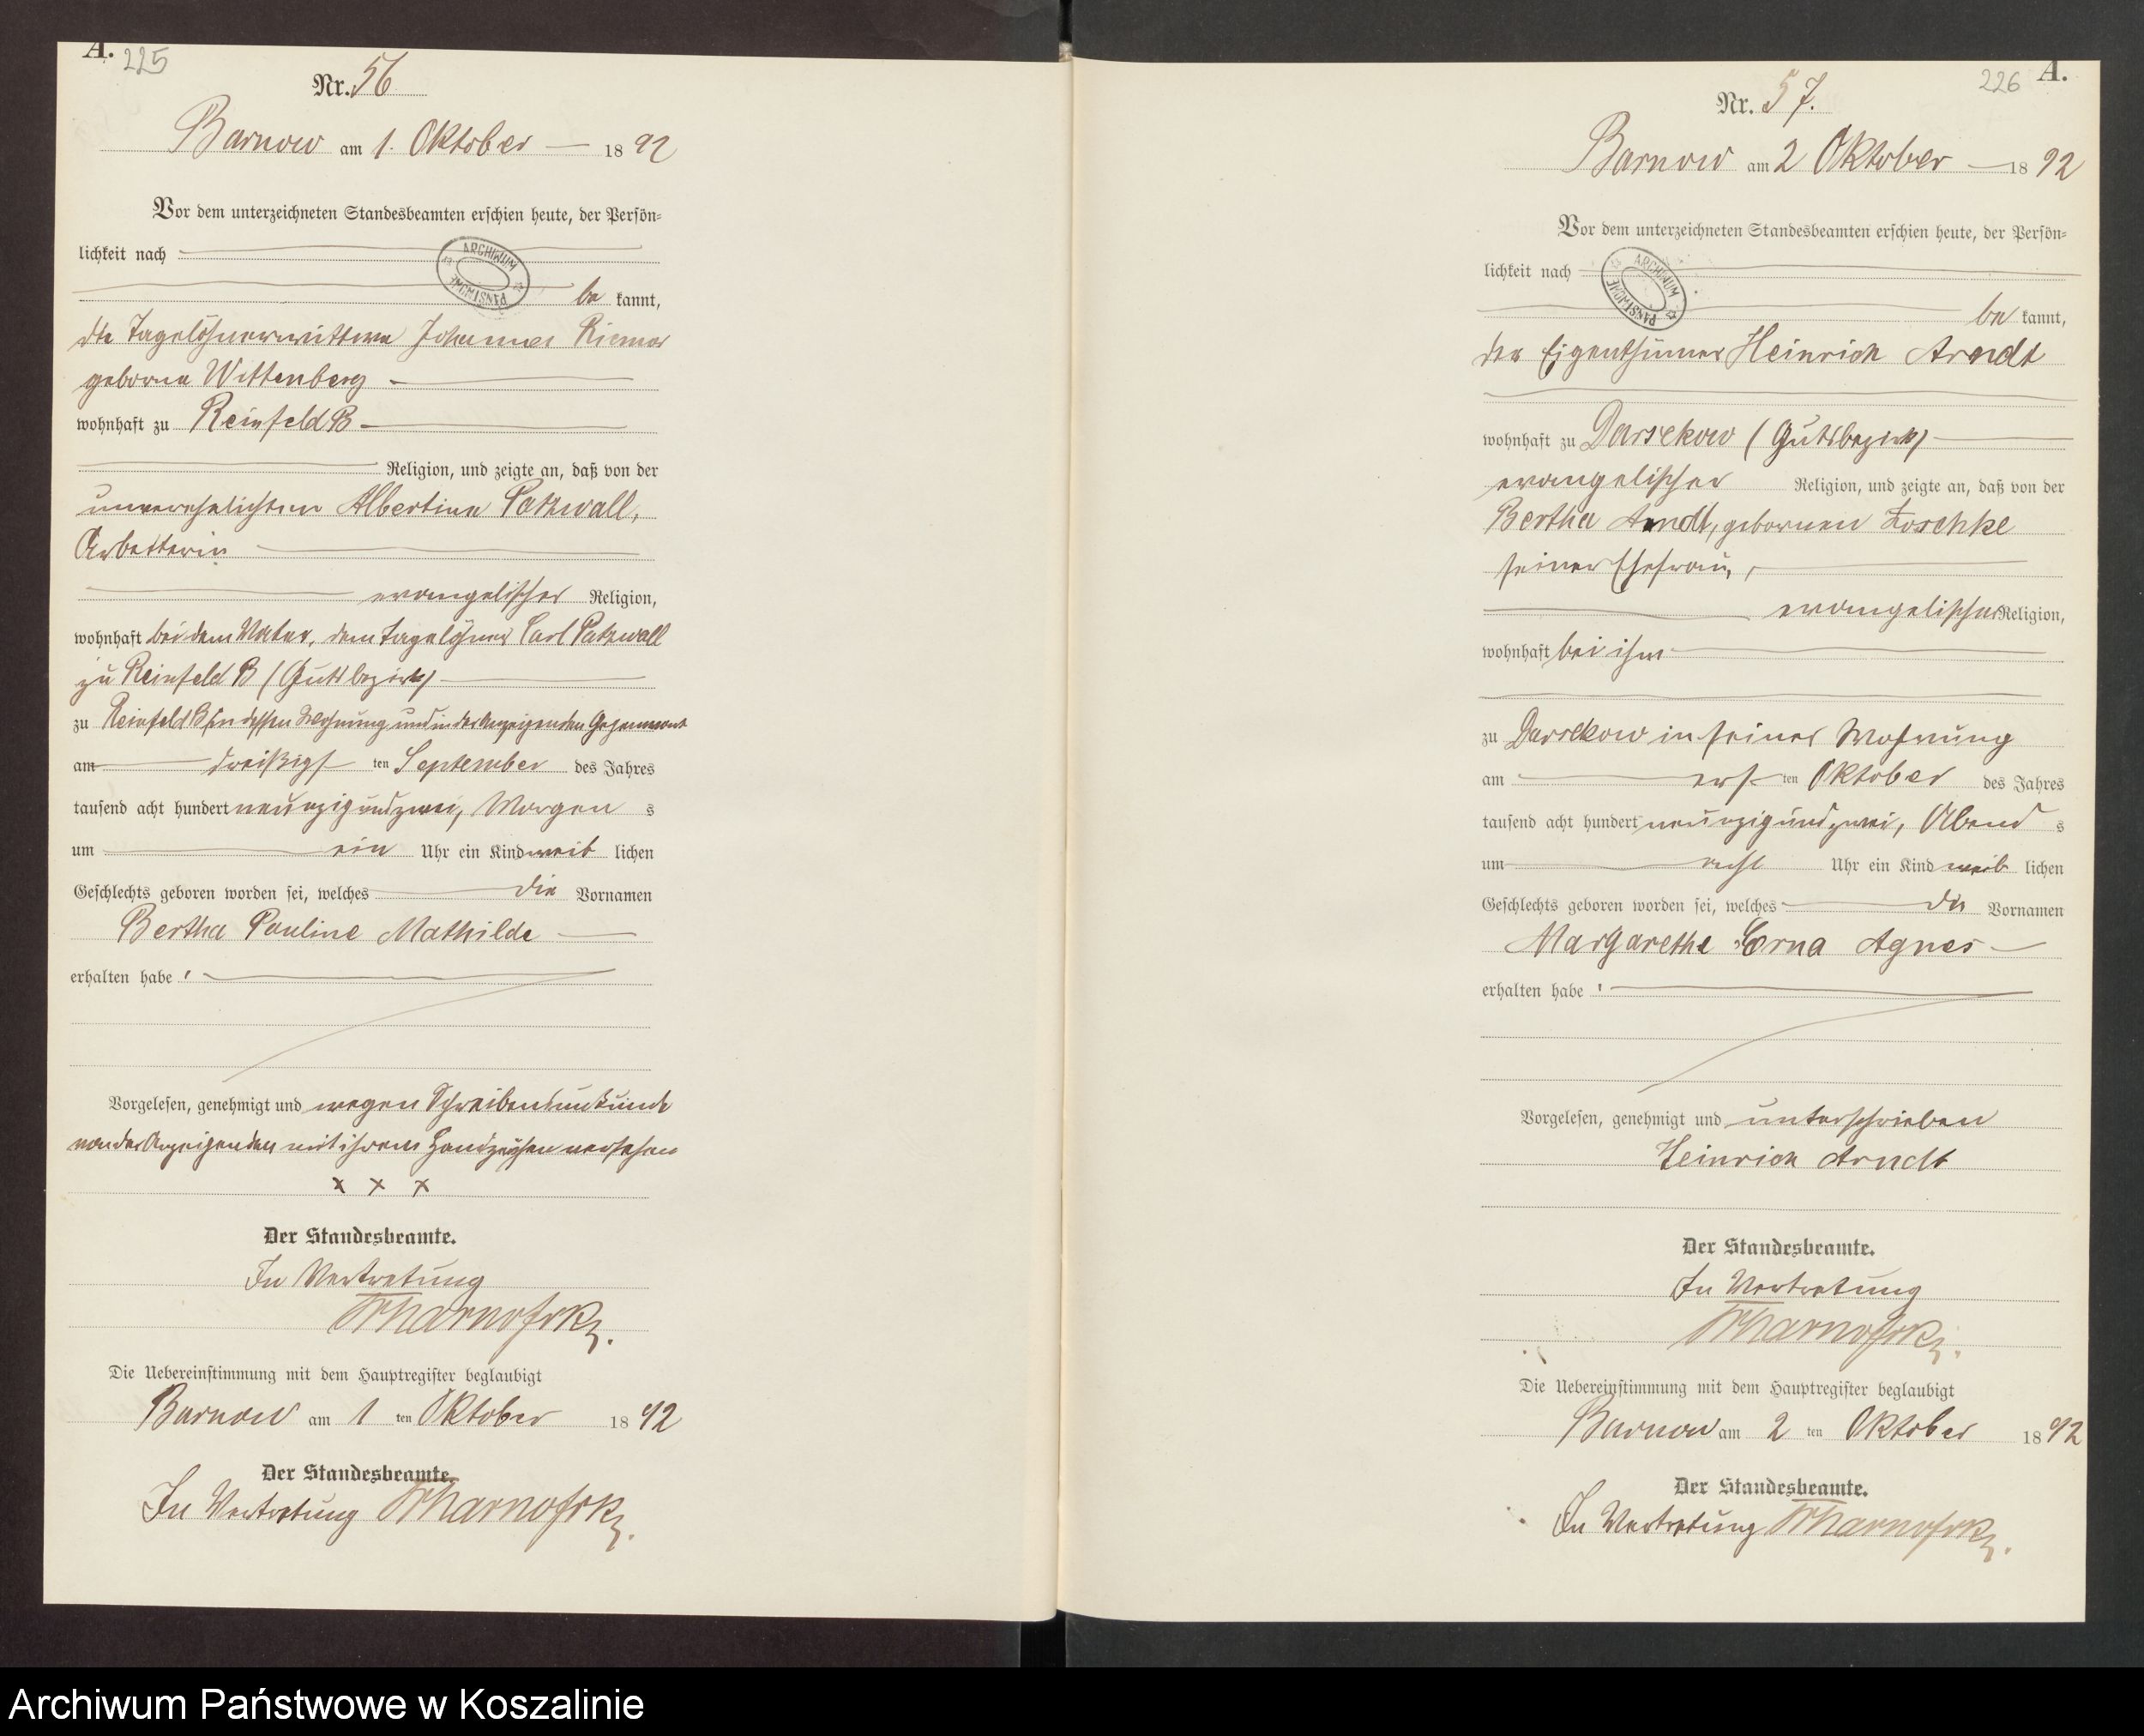 A. 225
Nr. 56
Barnow am 1. Oktober 18 92
Vor dem unterzeichneten Standesbeamten erschien heute, der Persön-
lichkeit nach
ARCHIWUM PAŃSTWOWE
be kannt,
die Tagelöhnerwittwe Johanne Riemer
geborne Wittenberg
wohnhaft zu Reinfeld B
Religion, und zeigte an, daß von der
unverehelichten Albertine Patzwall,
Arbeiterin
evangelischer Religion,
wohnhaft bei dem Vater, dem Tagelöhner Carl Patzwall
zu Reinfeld B (Gutsbezirk)
zu Reinfeld B in dessen Wohnung und in der Anzeigenden Gegenwart
am dreißigs ten September des Jahres
tausend acht hundert neunzig und zwei, Morgen s
um ein Uhr ein Kind weib lichen
Geschlechts geboren worden sei, welches die Vornamen
Bertha Pauline Mathilde
erhalten habe.
Vorgelesen, genehmigt und wegen Schreibensunkunde
von der Anzeigenden mit ihrem Handzeichen versehen
x x x
Der Standesbeamte.
In Vertretung
Die Uebereinstimmung mit dem Hauptregister beglaubigt
Barnow am 1 ten Oktober 18 92
Der Standesbeamte.
In Vertretung
226 A.
Nr. 57.
Barnow am 2 Oktober 18 92
Vor dem unterzeichneten Standesbeamten erschien heute, der Persön-
lichkeit nach
ARCHIWUM PAŃSTWOWE
be kannt,
der Eigenthümer Heinrich Arndt
wohnhaft zu Darsekow (Gutsbezirk)
evangelischer Religion, und zeigte an, daß von der
Bertha Arndt, gebornen Koschke
seiner Ehefrau,
evangelischer Religion,
wohnhaft bei ihm
zu Darsekow in seiner Wohnung
am ers ten Oktober des Jahres
tausend acht hundert neunzig und zwei, Abend s
um acht Uhr ein Kind weib lichen
Geschlechts geboren worden sei, welches die Vornamen
Margarethe Erna Agnes
erhalten habe.
Vorgelesen, genehmigt und unterschrieben
Heinrich Arndt
Der Standesbeamte.
In Vertretung
Die Uebereinstimmung mit dem Hauptregister beglaubigt
Barnow am 2 ten Oktober 18 92
Der Standesbeamte.
In Vertretung
Archiwum Państwowe w Koszalinie